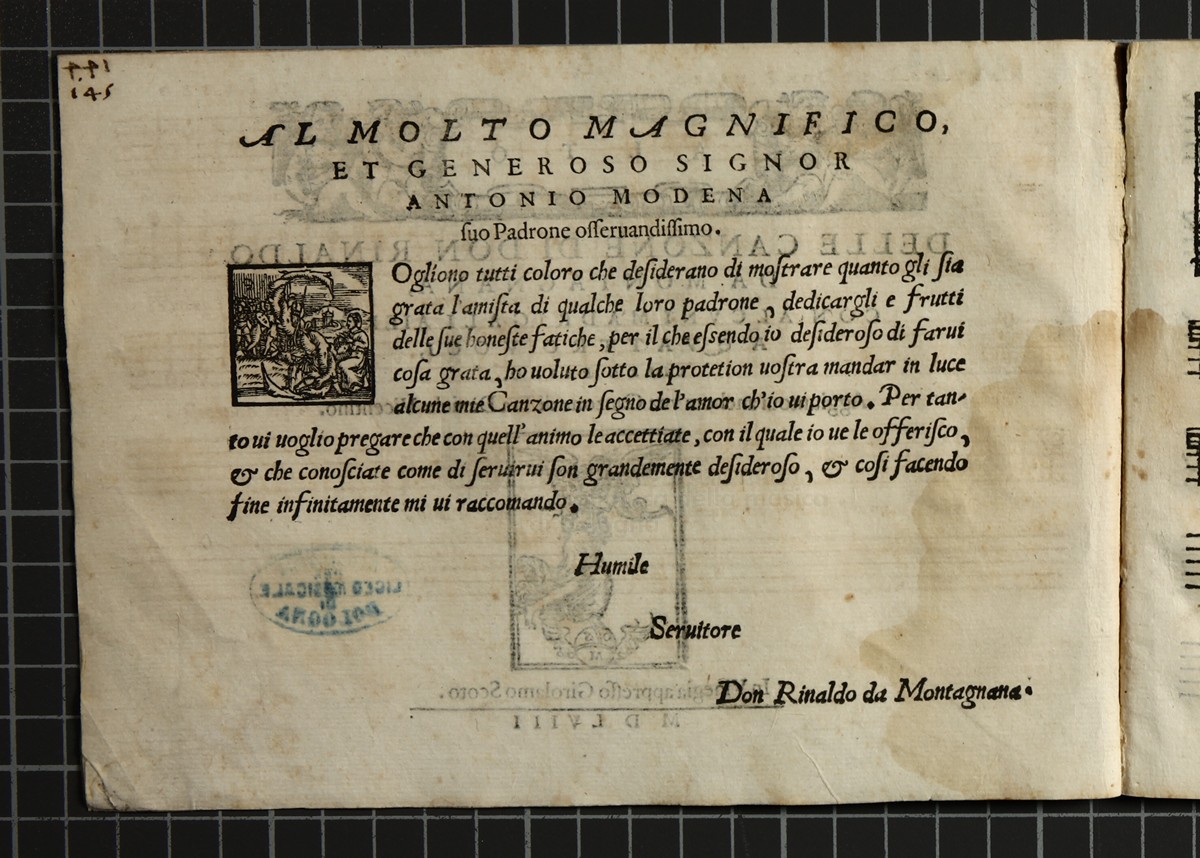 145
AL MOLTO MAGNIFICO,
ET GENEROSO SIGNOR
ANTONIO MODENA
ſuo Padrone oſſeruandiſſimo.
SOgliono tutti coloro che deſiderano di moſtrare quanto gli ſia
grata l'amiſta di qualche loro padrone, dedicargli e frutti
delle ſue honeſte fatiche, per il che eſſendo io deſideroſo di farui
coſa grata, ho uoluto ſotto la protetion uoſtra mandar in luce
alcune mie Canzone in ſegno de l'amor ch'io ui porto. Per tan-
to ui uoglio pregare che con quell'animo le accettiate, con il quale io ue le offeriſco,
& che conoſciate come di ſeruirui ſon grandemente deſideroſo, & coſi facendo
fine infinitamente mi ui raccomando.
Humile
Seruitore
Don Rinaldo da Montagnana.